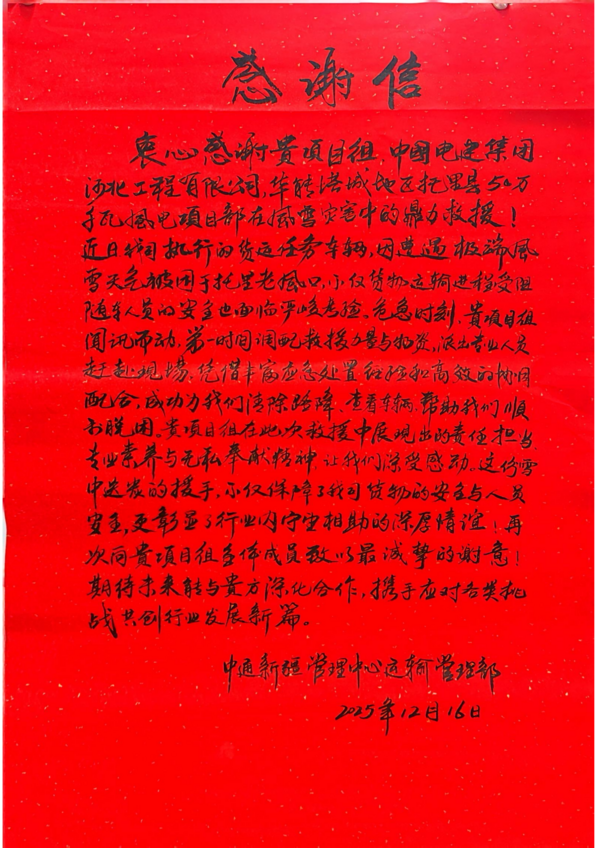 感谢信
衷心感谢贵项目组,中國电建集团
河北工程有限公司,华能塔城地区托里县50万
千瓦風电项目部在風雪灾害中的鼎力救援!
近日我司执行的货运任务车辆,因遭遇极端風
雪天气被困于托里老風口,不仅货物运输进程受阻
随车人员的安全也面临严峻考验。危急时刻,贵项目组
闻讯而动,第一时间调配救援力量与物资,派出专业人员
赶赴现场,凭借丰富应急处置经验和高效的协同
配合,成功为我们清除路障、查看车辆,帮助我们顺
利脱困。贵项目组在此次救援中展现出的责任担当
专业素养与无私奉献精神,让我们深受感动。这份雪
中送炭的援手,不仅保障了我司货物的安全与人员
安全,更彰显了行业内守望相助的深厚情谊!再
次向贵项目组全体成员致以最诚挚的谢意!
期待未来能与贵方深化合作,携手应对各类挑
战共创行业发展新篇。
中通新疆管理中心运输管理部
2025年12月16日